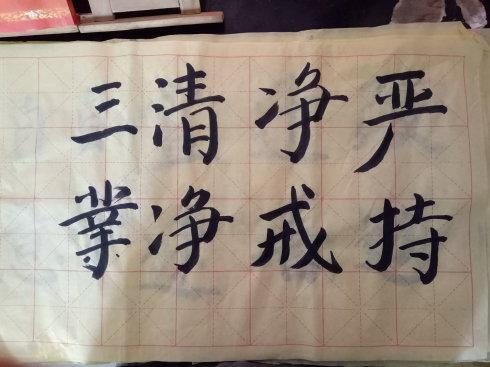 严持
净戒
清净
三業